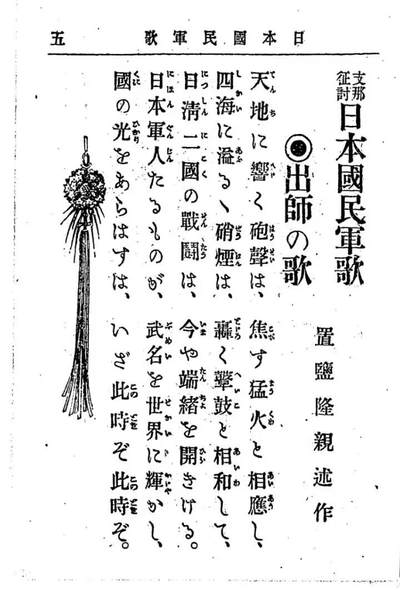 日本國民軍歌 五
支那征討 日本國民軍歌
◉出師の歌
置鹽隆親述作
天地に響く砲聲は、焦す猛火と相應し、
四海に溢るゝ硝煙は、轟く鼙鼓と相和して、
日清二國の戰鬪は、今や端緒を開きける。
日本軍人たるものが、武名を世界に輝かし、
國の光をあらはすは、いざ此時ぞ此時ぞ。